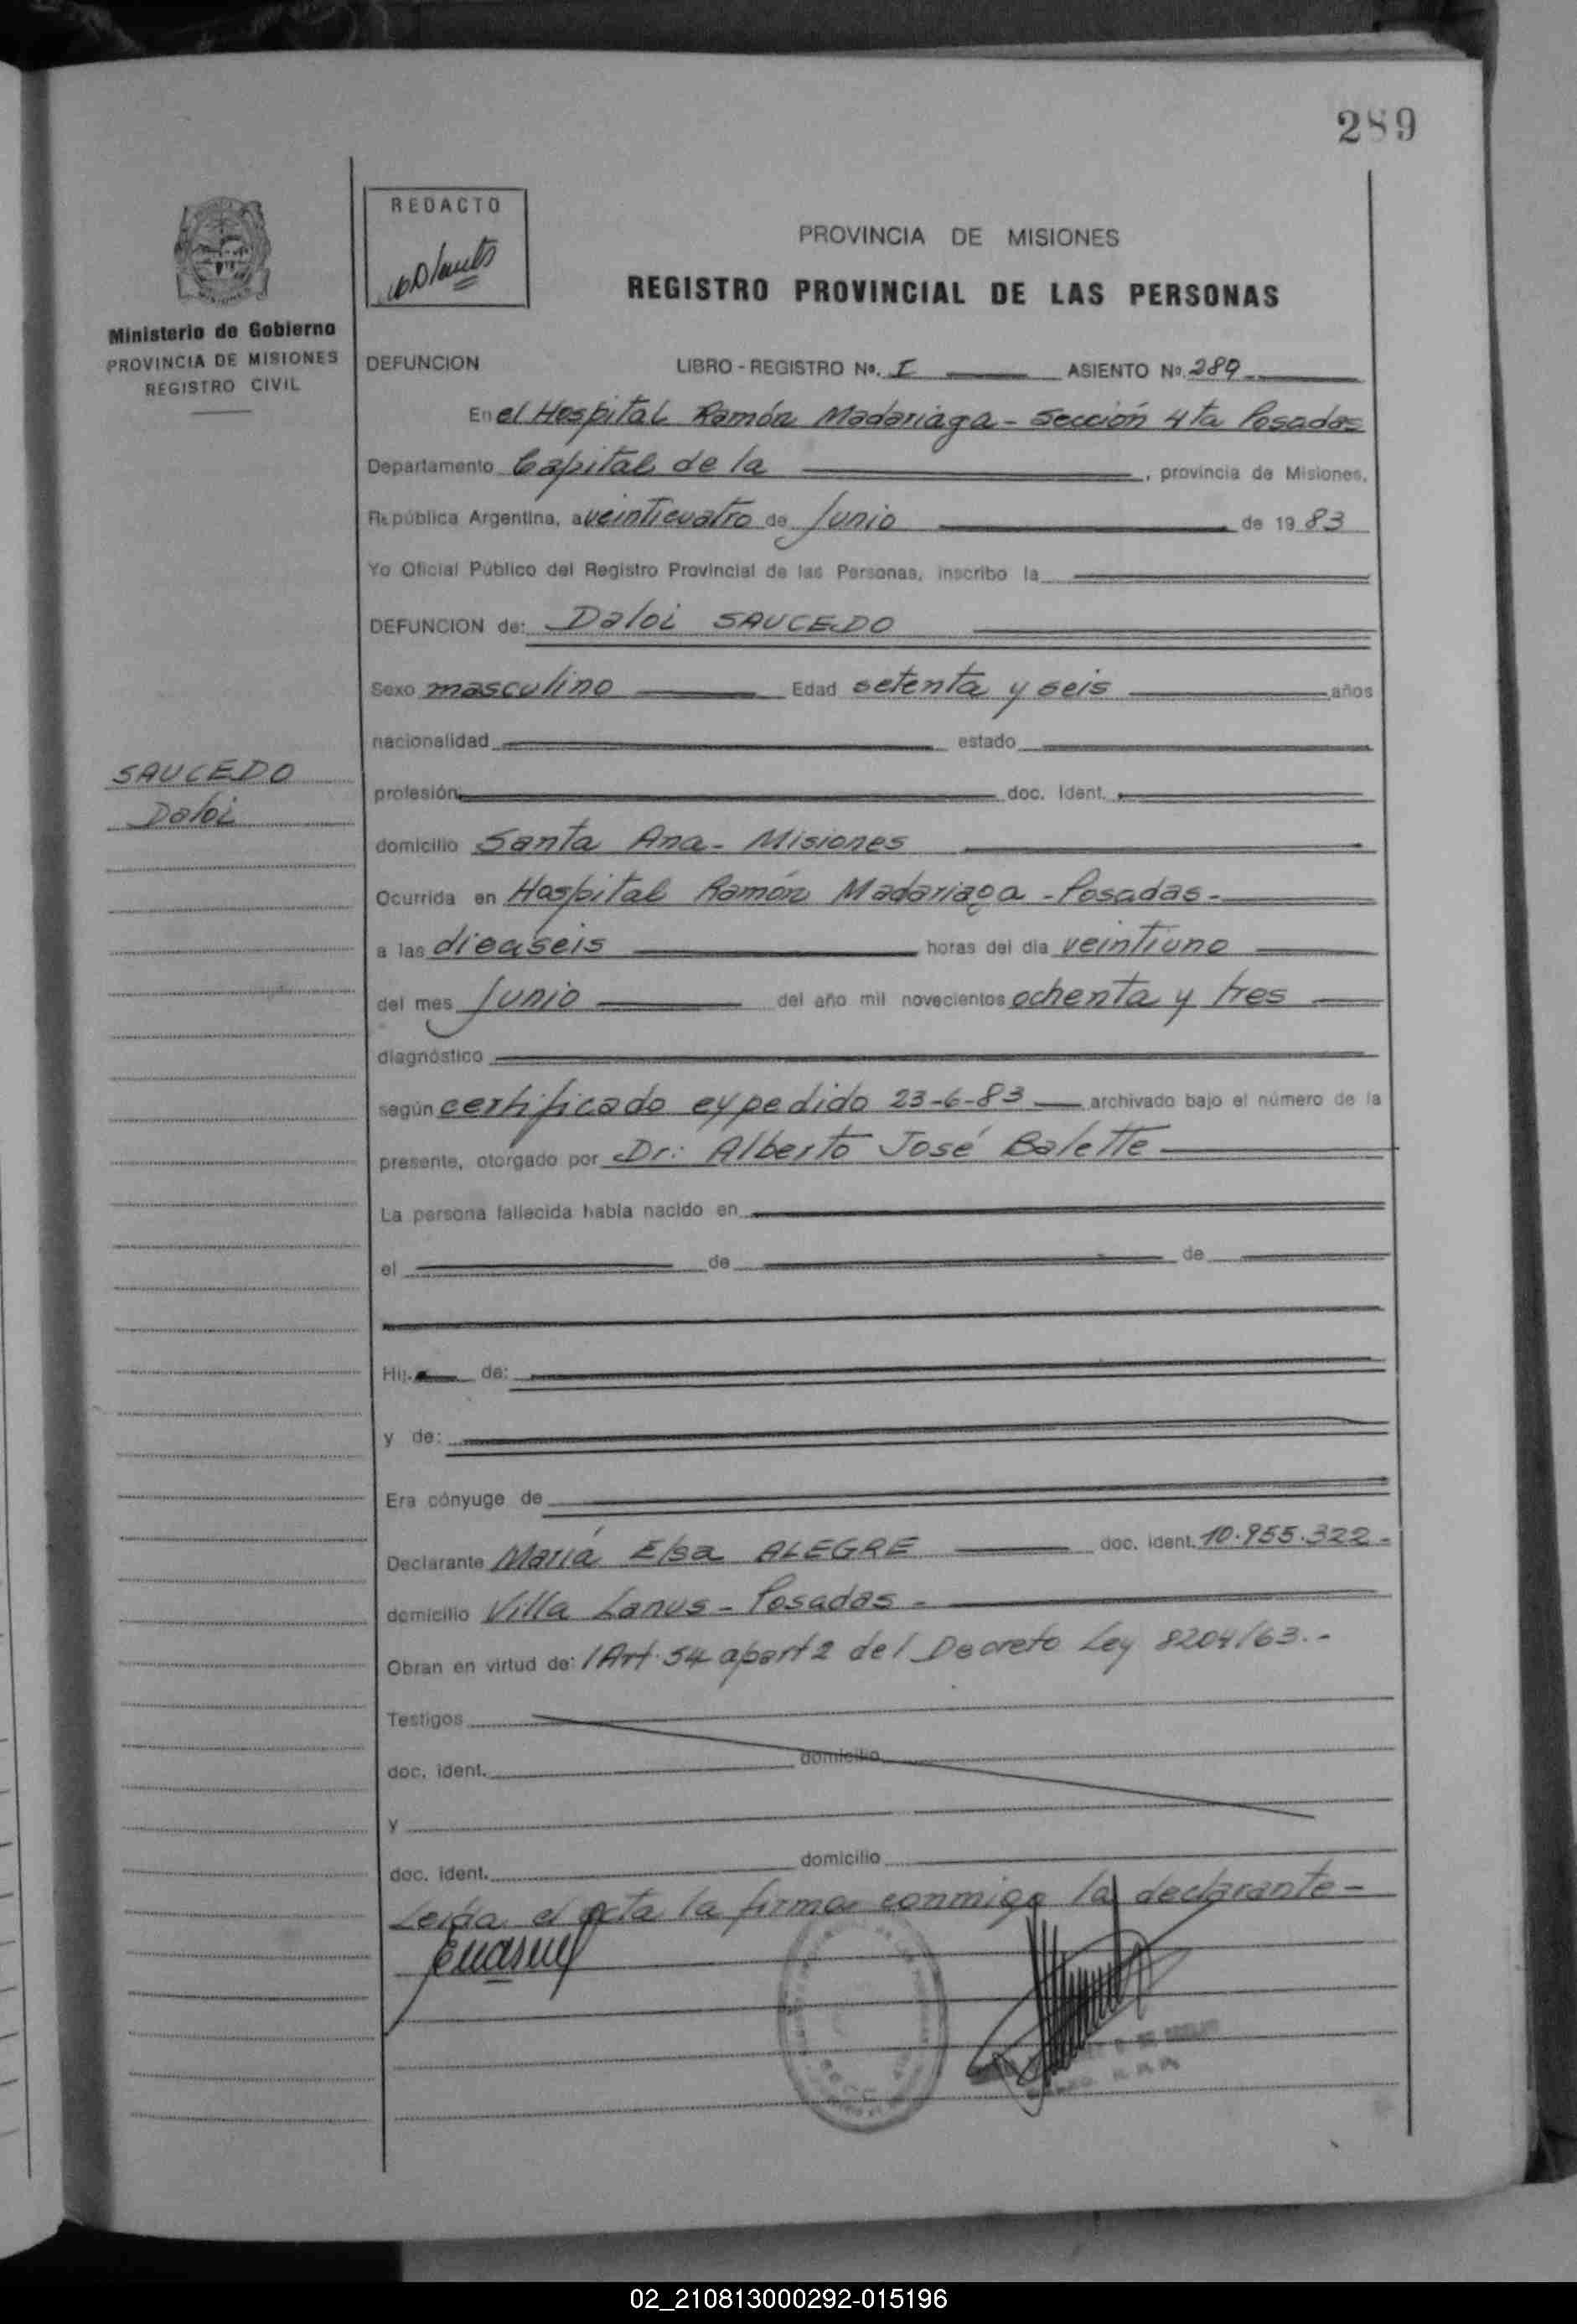 289
REDACTO
PROVINCIA DE MISIONES
REGISTRO PROVINCIAL DE LAS PERSONAS
Ministerio de Gobierno
PROVINCIA DE MISIONES
REGISTRO CIVIL
DEFUNCION LIBRO - REGISTRO Nº. I ASIENTO Nº. 289
En el Hospital Ramón Madariaga - Sección 4ta Posadas
Departamento Capital de la , provincia de Misiones,
República Argentina, a veinticuatro de Junio de 1983
Yo Oficial Público del Registro Provincial de las Personas, inscribo la
DEFUNCION de: Daloi SAUCEDO
Sexo masculino Edad setenta y seis años
nacionalidad estado
SAUCEDO
Daloi
profesión doc. Ident.
domicilio Santa Ana - Misiones
Ocurrida en Hospital Ramón Madariaga - Posadas -
a las dieciseis horas del día veintiuno
del mes Junio del año mil novecientos ochenta y tres
diagnóstico
según certificado expedido 23-6-83 archivado bajo el número de la
presente, otorgado por Dr: Alberto José Balette
La persona fallecida había nacido en
el de de
Hij. de:
y de:
Era cónyuge de
Declarante María Elsa ALEGRE doc. ident. 10.955.322 -
domicilio Villa Lanus - Posadas -
Obran en virtud de: /Art. 54 apart 2 del Decreto Ley 8204/63.-
Testigos
doc. ident. domicilio
y
doc. ident. domicilio
Leída el acta la firma conmigo la declarante -
02_210813000292-015196